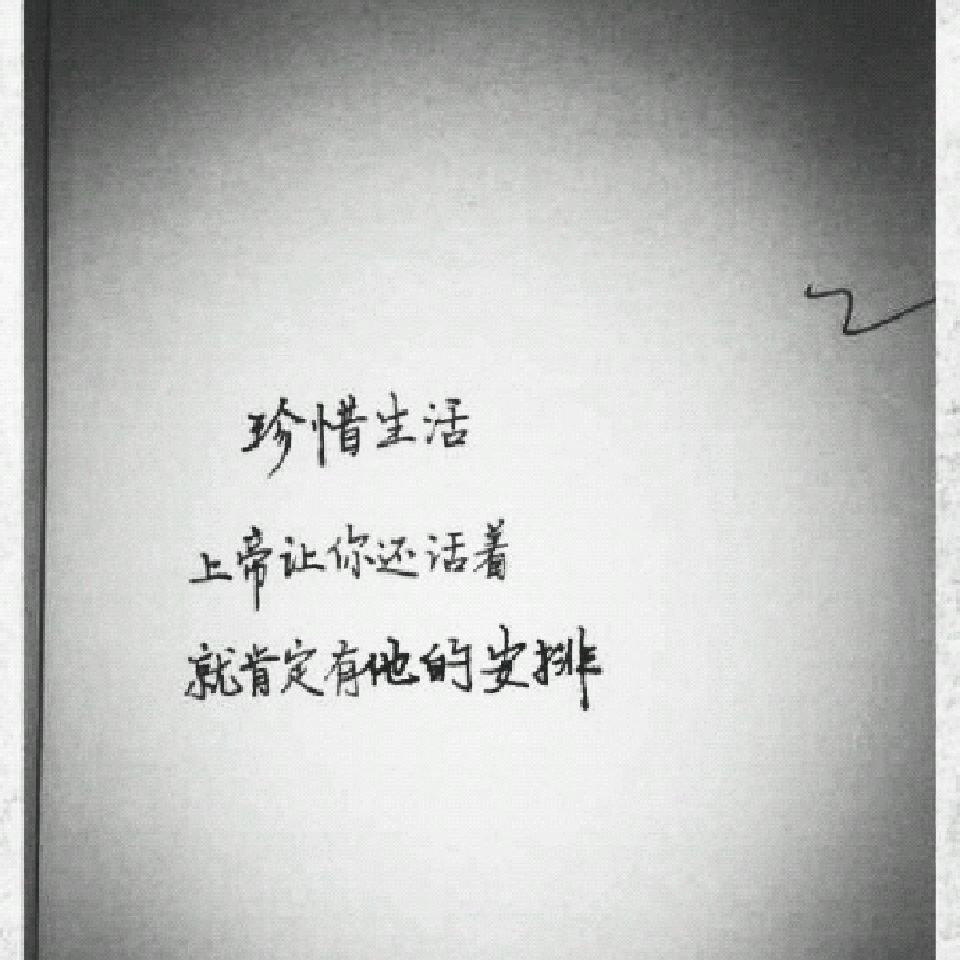 珍惜生活
上帝让你还活着
就肯定有他的安排